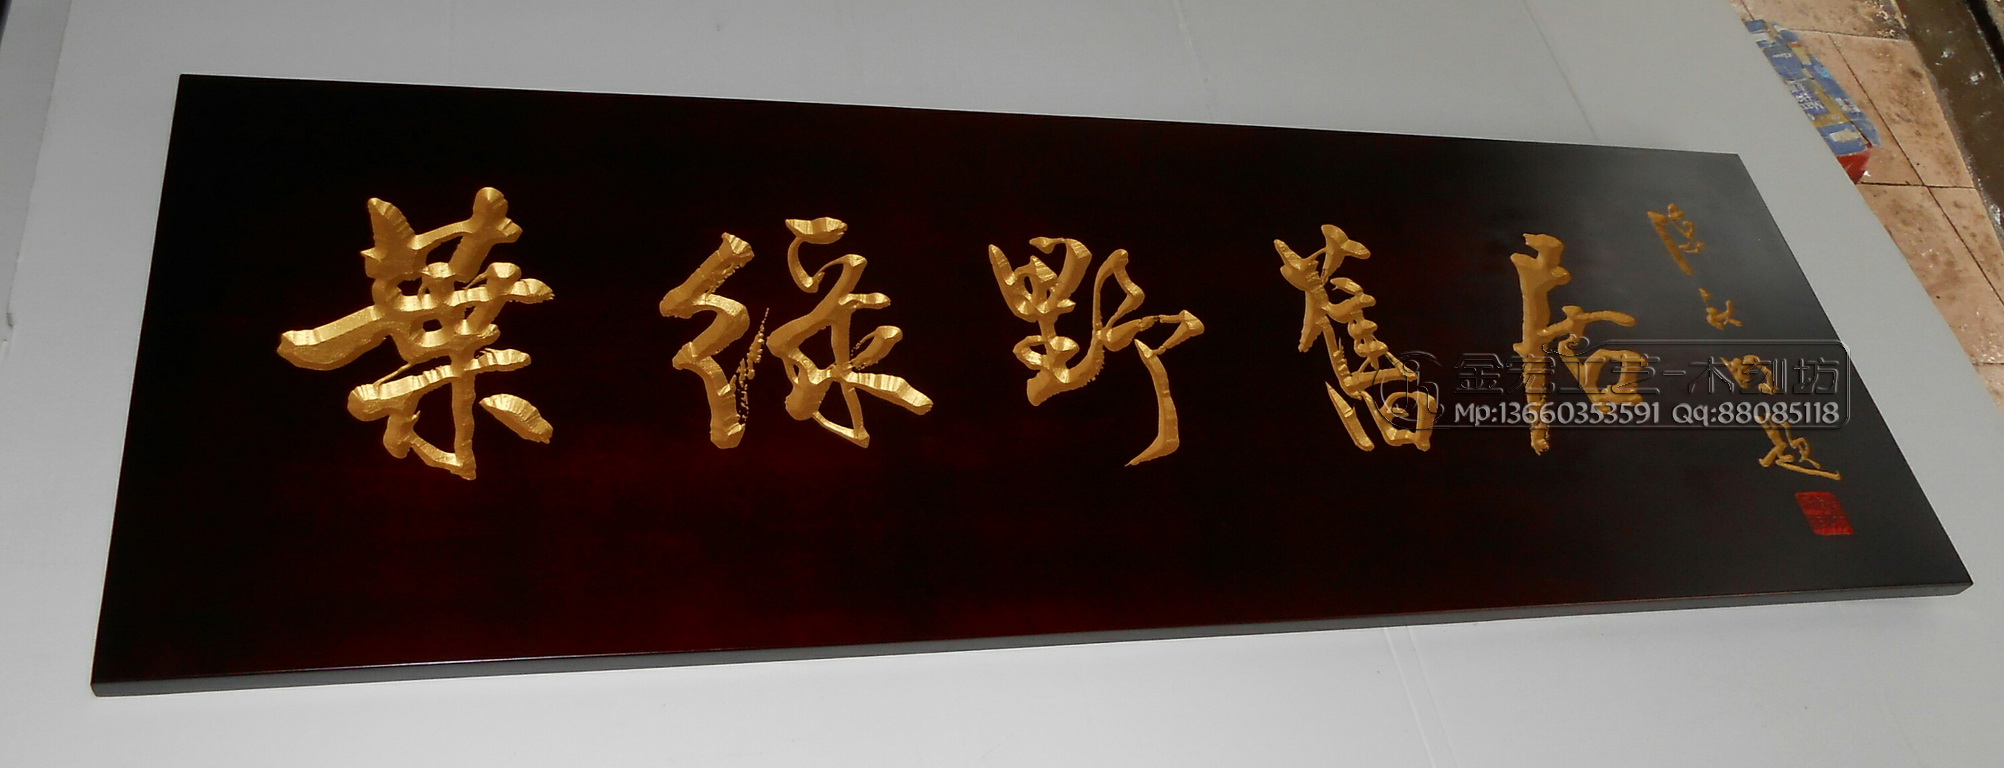 葉綠野舊居
題
金宏工艺-木刻坊
Mp:13660353591 Qq:88085118